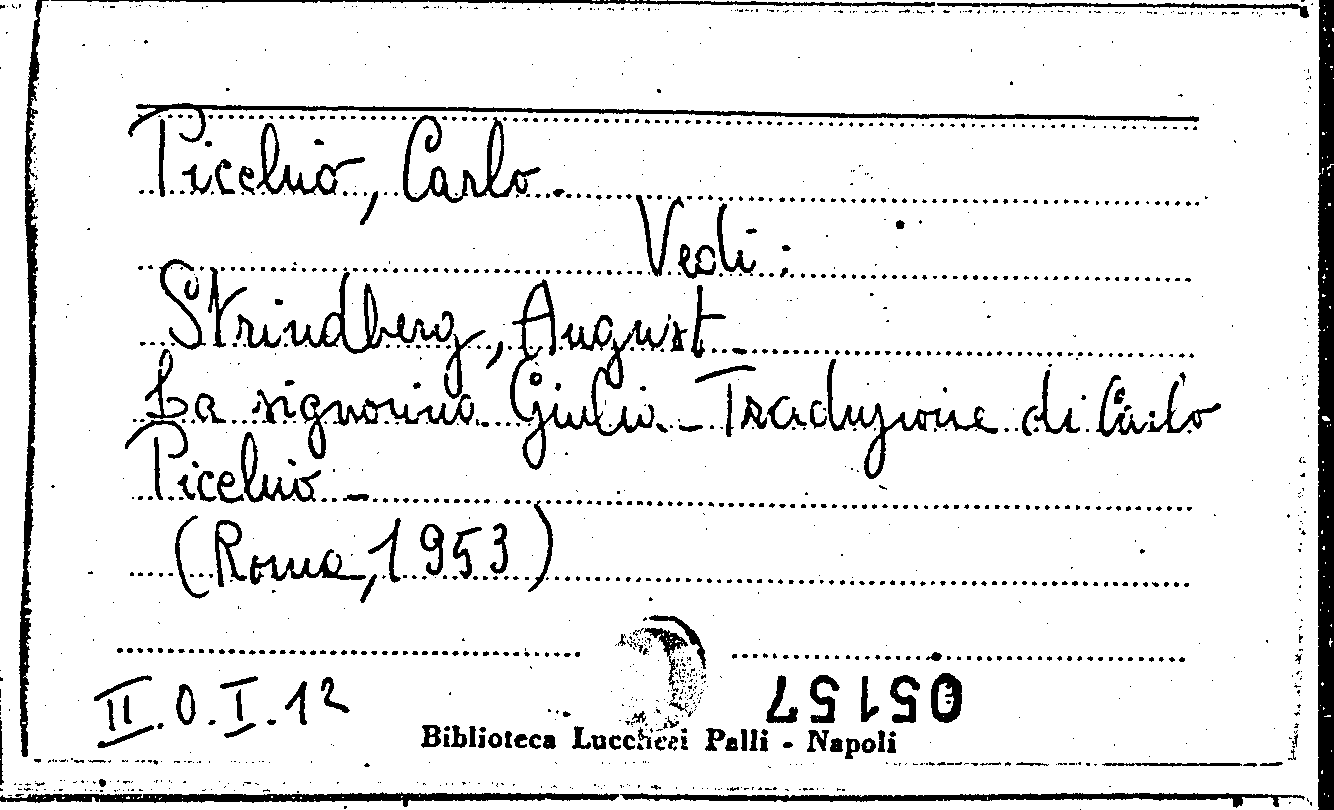 Picchio, Carlo.
Vedi:
Strindberg, August -
La signorina Giulia - Traduzione di Carlo
Picchio -
(Roma, 1953)
II.O.I.12
05157
Biblioteca Lucchesi Palli - Napoli